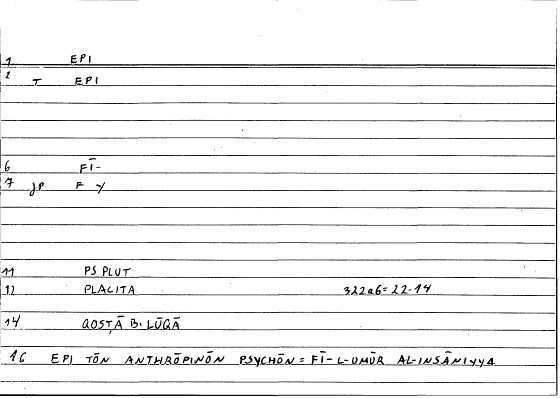 1 EPI
2 T EPI
6 FĪ-
7 JP F Y
11 PS PLUT
12 PLACITA 322a6=22.14
14 QOSṬĀ B. LŪQĀ
16 EPI TŌN ANTHRŌPINŌN PSYCHŌN = FĪ-L-UMŪR AL-INSĀNIYYA